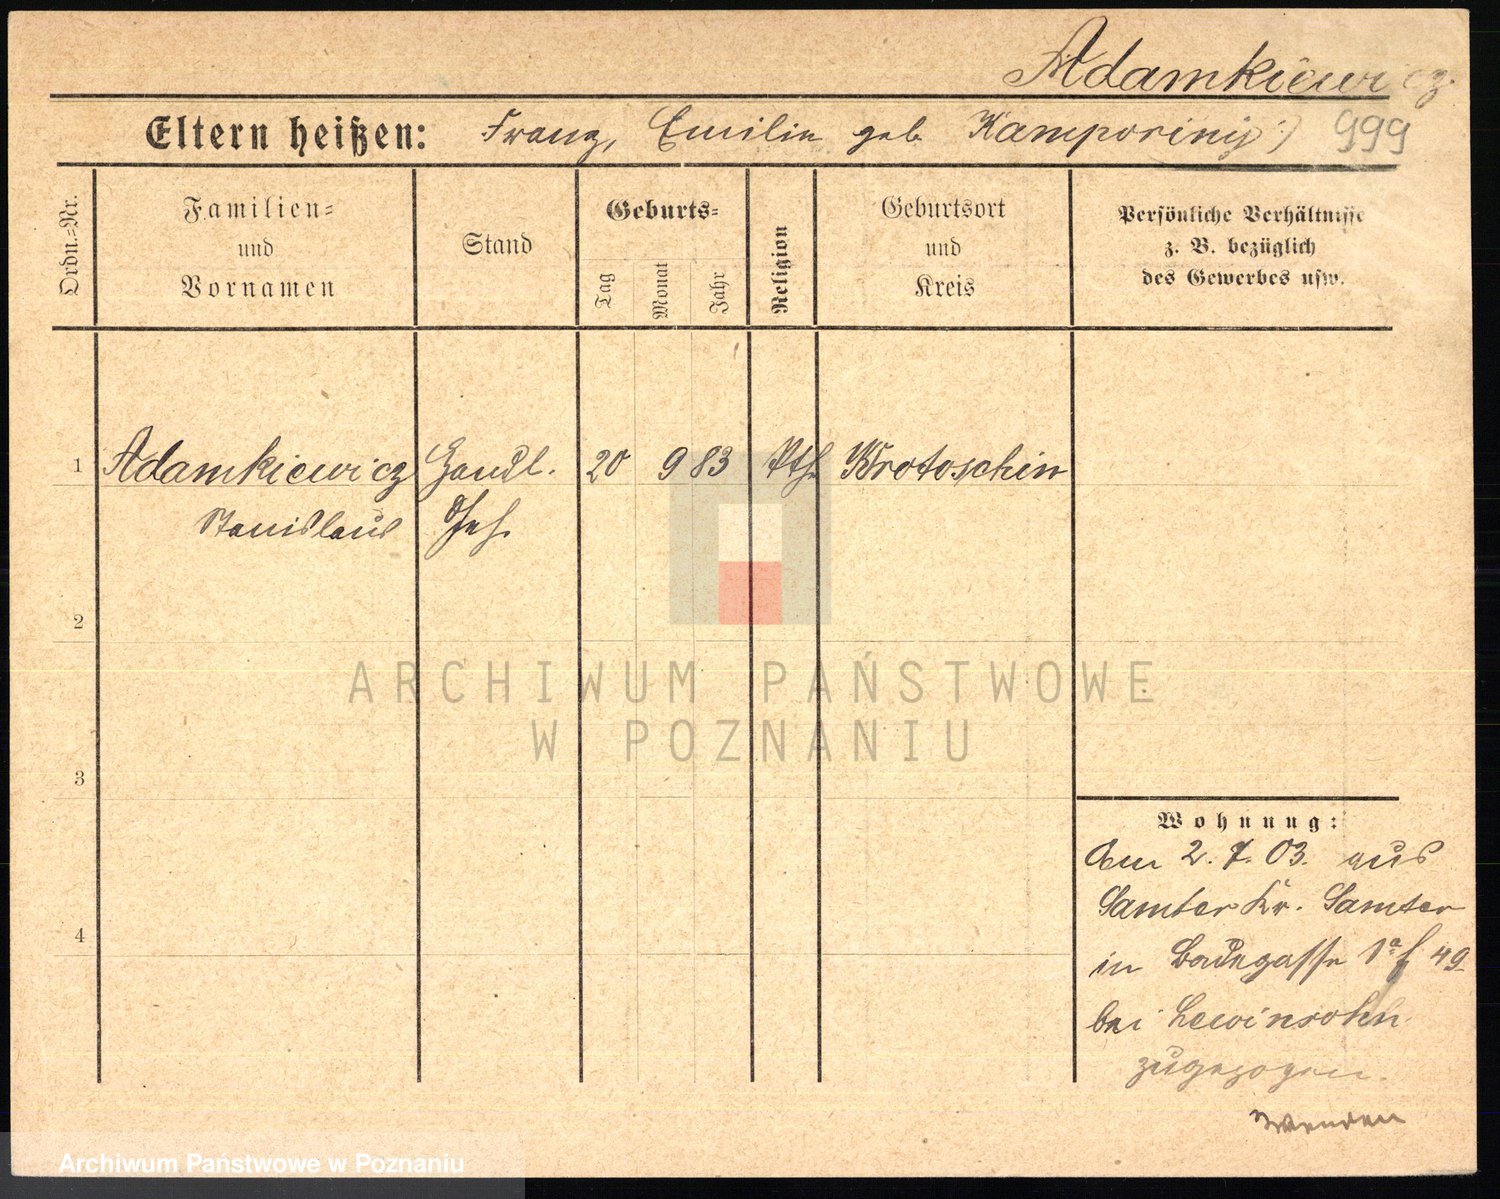 Adamkiewicz
Eltern heißen: Franz, Emilie geb
999
Ordn.=Nr.
Familien=
und
Vornamen
Stand
Geburts=
Tag
Monat
Jahr
Religion
Geburtsort
und
Kreis
Persönliche Verhältnisse
z. B. bezüglich
des Gewerbes usw.
1 Adamkiewicz Handl. 20 9 83 kth Krotoschin
Stanislaus Geh.
2
3
4
Wohnung:
Am 2. 7. 03. aus
Samter Kr. Samter
in Badegasse 1a f 49
bei Lewinsohn
zugezogen.
Wenden
ARCHIWUM PAŃSTWOWE
W POZNANIU
Archiwum Państwowe w Poznaniu